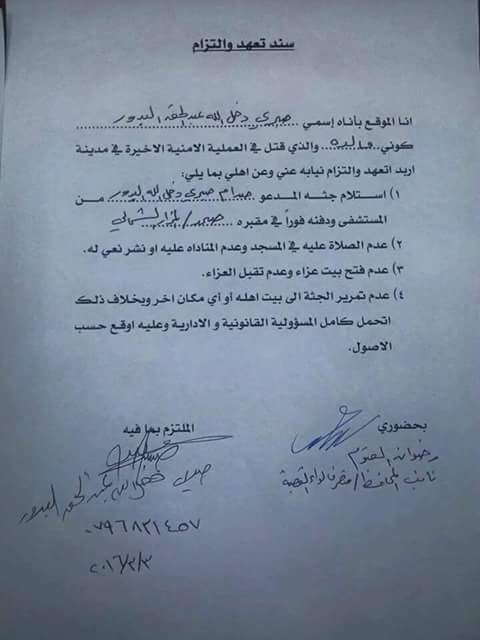 سند تعهد والتزام
انا الموقع بأناه إسمي صبري دخل الله عبد
كوني والذي قتل في العملية الامنية الاخيرة في مدينة
اربد اتعهد والتزام نيابه عني وعن اهلي بما يلي:
١) استلام جثه المدعو صدام صبري دخل الله من
المستشفى ودفنه فوراً في مقبره
٢) عدم الصلاة عليه في المسجد وعدم المناداه عليه او نشر نعي له.
٣) عدم فتح بيت عزاء وعدم تقبل العزاء.
٤) عدم تمرير الجثة الى بيت اهله أو أي مكان اخر وبخلاف ذلك
اتحمل كامل المسؤولية القانونية و الادارية وعليه اوقع حسب
الاصول.
بحضوري
رضوان العتوم
نائب المحافظ/ متصرف لواء القصبة
الملتزم بما فيه
صبري
٠٧٩٦٨٢١٤٥٧
٢٠١٦/٣/٣